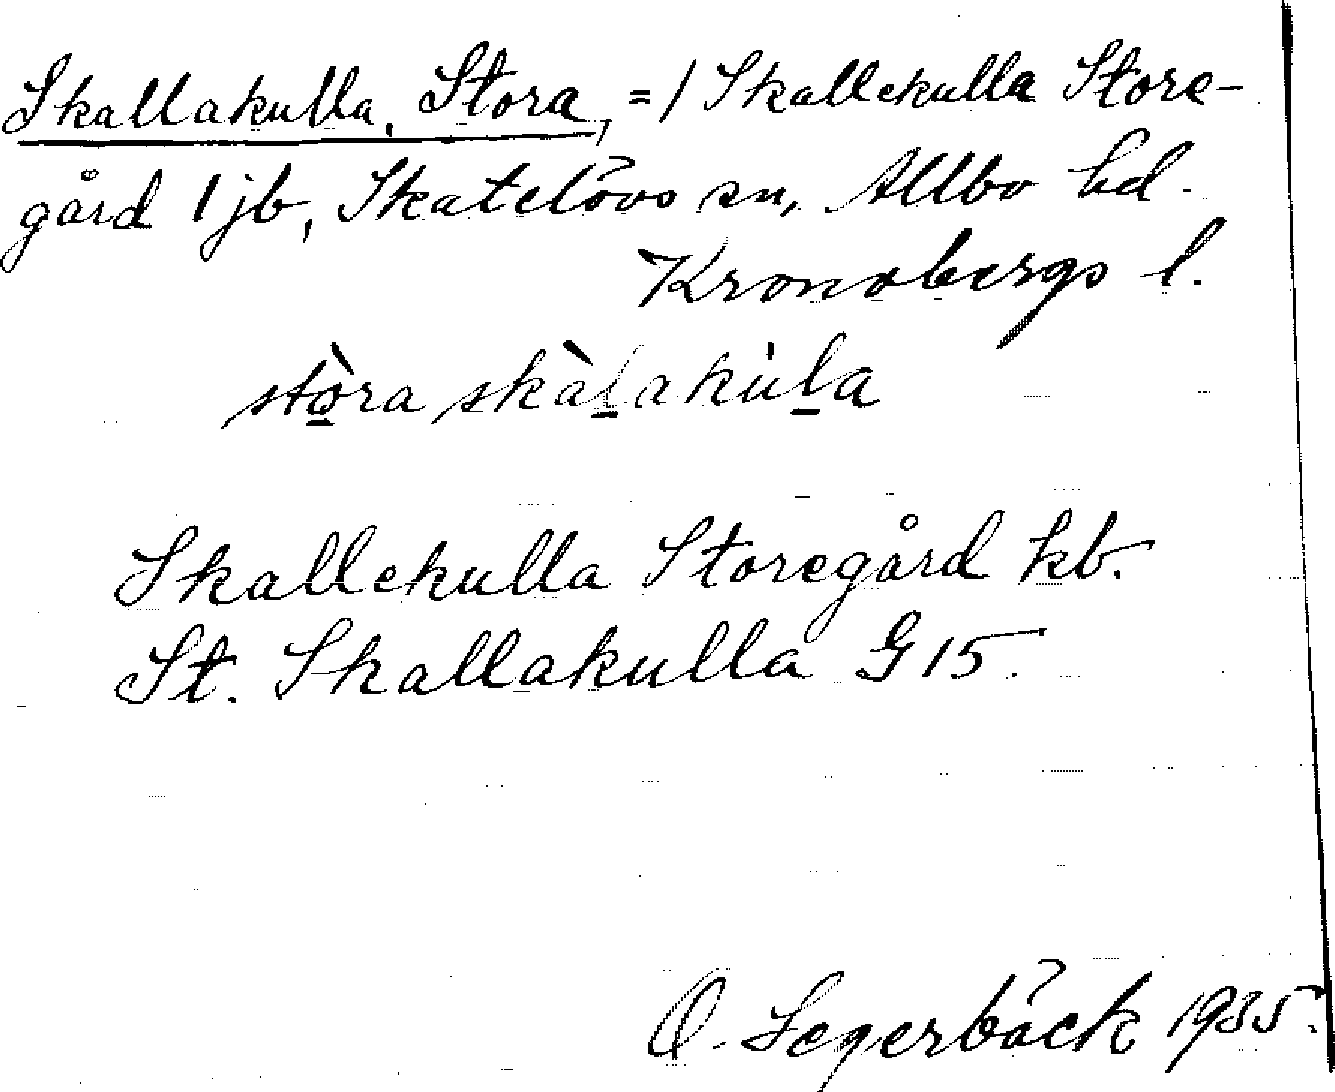 Skallakulla, Stora, =/ Skallekulla Store-
gård 1 jb, Skatelövs sn, Allbo hd.
Kronobergs l.
stò̱ra skàḻakùḻa
Skallekulla Storegård kb.
St. Skallakulla G 15.
O. Segerbäck 1935.